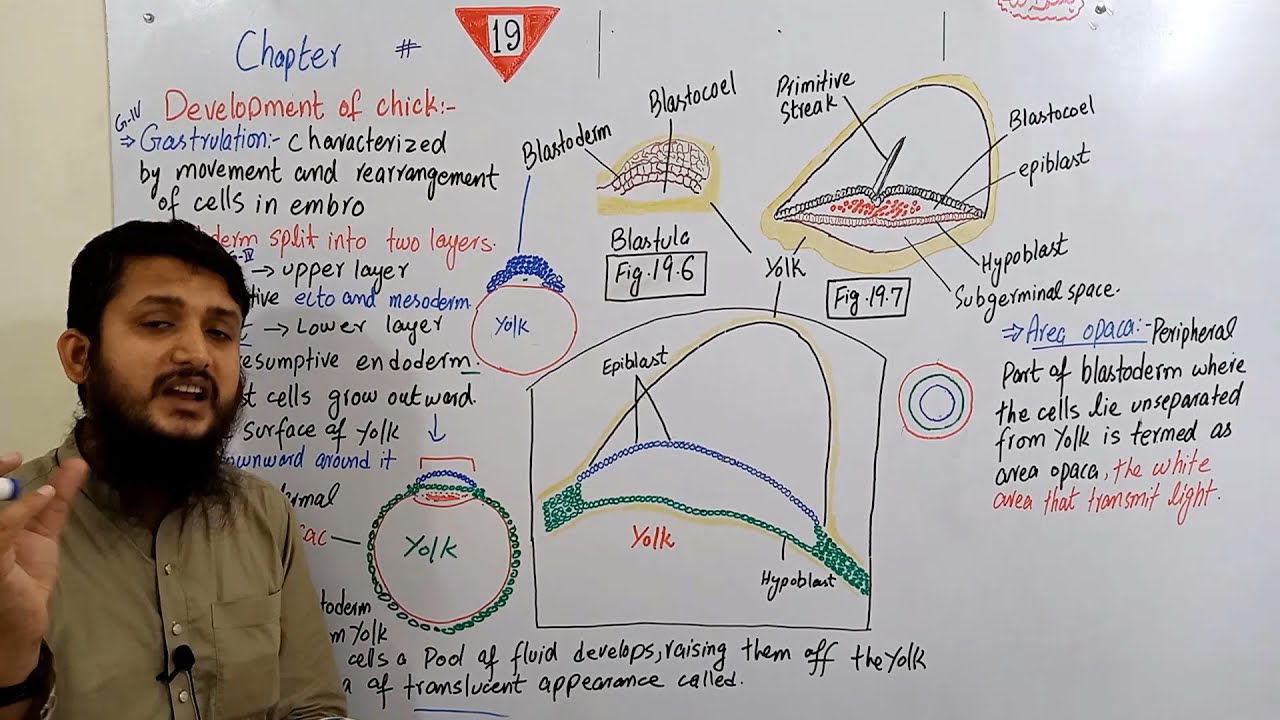 Chapter # 19
Development of chick:-
G-IV
⇒ Gastrulation:- characterized
by movement and rearrangement
of cells in embro
derm split into two layers.
G-IV
→ upper layer
tive ecto and mesoderm
→ Lower layer
resumptive endoderm.
st cells grow outward.
surface of yolk
downward around it
dermal
sac
toderm
m yolk
cells a Pool of fluid develops, raising them off the yolk
a of translucent appearance called.
Blastoderm
Yolk
Yolk
Blastocoel
Blastula
Fig.19.6
Yolk
Primitive
streak
Blastocoel
epiblast
Hypoblast
Subgerminal space.
Fig.19.7
Epiblast
Yolk
Hypoblast
⇒ Area opaca:- Peripheral
Part of blastoderm where
the cells lie unseparated
from Yolk is termed as
area opaca, the white
area that transmit light.